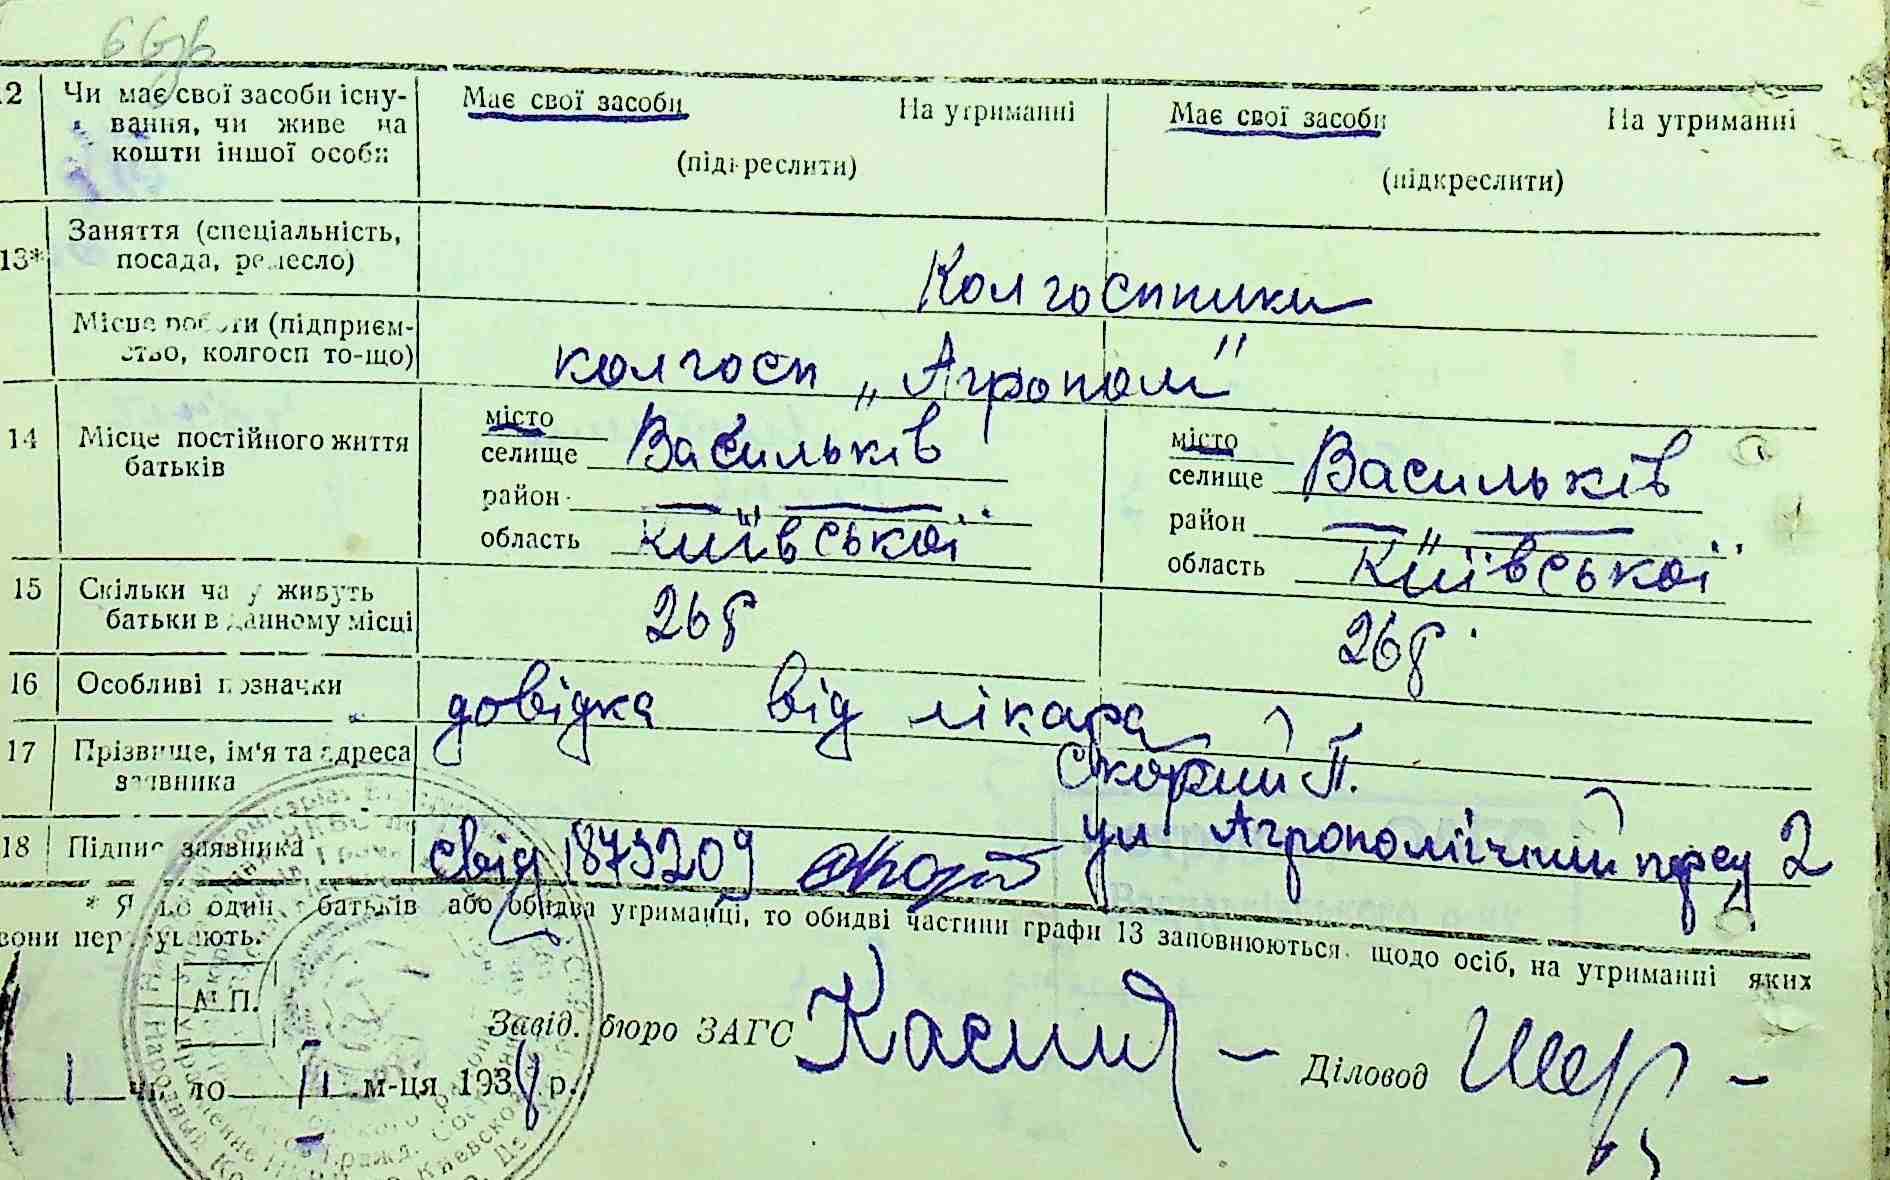 12 Чи має свої засоби існу- Має свої засоби На утриманні Має свої засоби На утриманні
вання, чи живе на
кошти іншої особи (підкреслити) (підкреслити)
13* Заняття (спеціальність,
посада, ремесло) Колгоспники
Місце роботи (підприєм-
ство, колгосп то-що) колгосп „Агрополі"
14 Місце постійного життя
батьків
місто місто
селище Васильків селище Васильків
район — — район — —
область Київської область Київської
15 Скільки часу живуть
батьки в данному місці 26 р 26 р.
16 Особливі позначки довідка від лікара
17 Прізвище, ім'я та адреса
заявника Скорий П.
ул Агрополічний 2
18 Підпис заявника свід 1873209
* Якщо один з батьків або обидва утриманці, то обидві частини графи 13 заповнюються щодо осіб, на утриманні яких
вони перебувають.
М.П.
Завід. бюро ЗАГС Діловод
1 число м-ця 193 р.